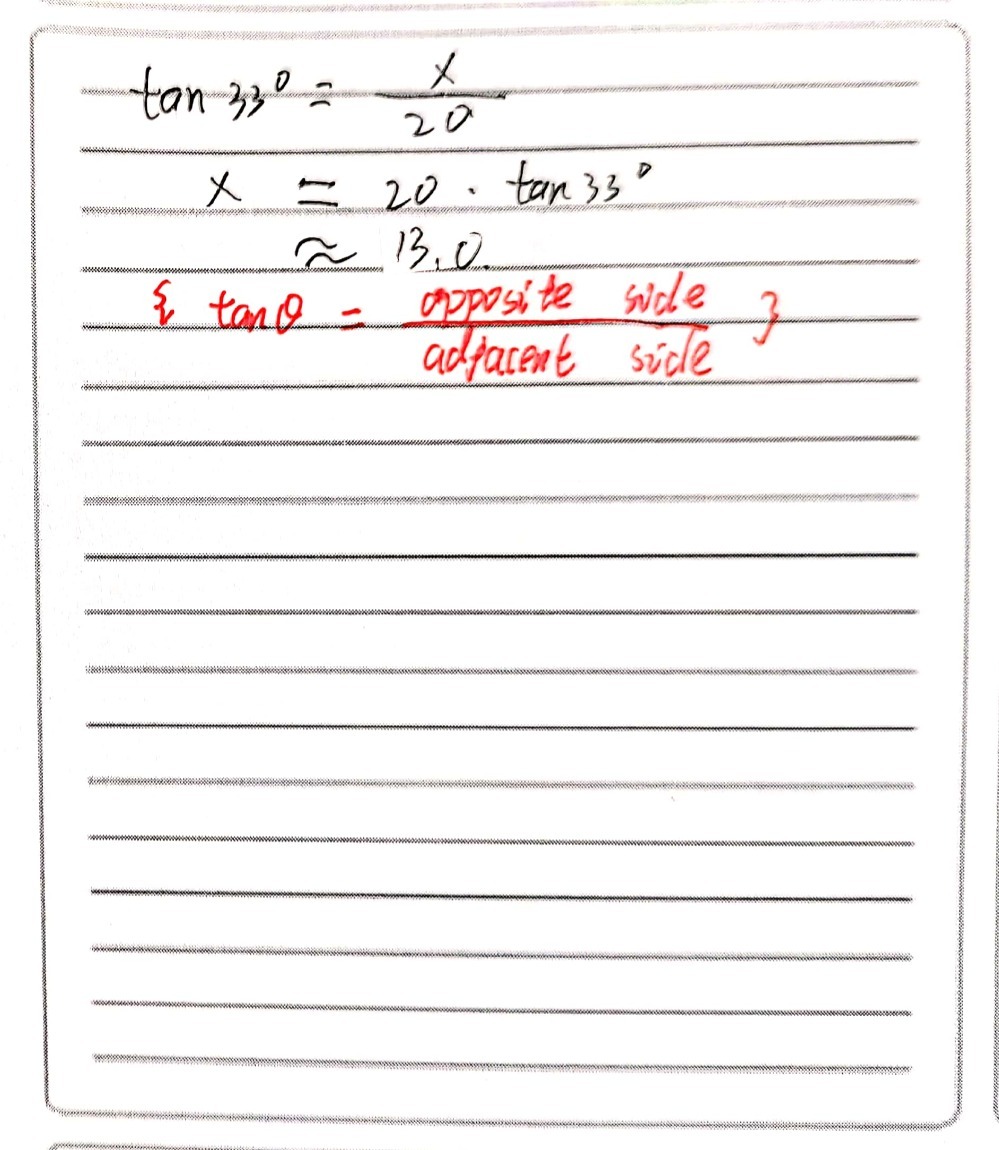 tan 33° = x/20
x = 20 · tan 33°
≈ 13.0.
{ tanθ = opposite side/adjacent side }